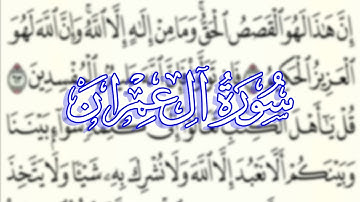 إِنَّ هَٰذَا لَهُوَ الْقَصَصُ الْحَقُّ وَمَا مِنْ إِلَٰهٍ إِلَّا اللَّهُ وَإِنَّ اللَّهَ لَهُوَ
الْعَزِيزُ الْحَكِيمُ بِالْمُفْسِدِينَ ٦٣
سُورَةُ آلِ عِمْرَانَ
قُلْ يَا أَهْلَ سَوَاءٍ بَيْنَنَا
وَبَيْنَكُمْ أَلَّا نَعْبُدَ إِلَّا اللَّهَ وَلَا نُشْرِكَ بِهِ شَيْئًا وَلَا يَتَّخِذَ